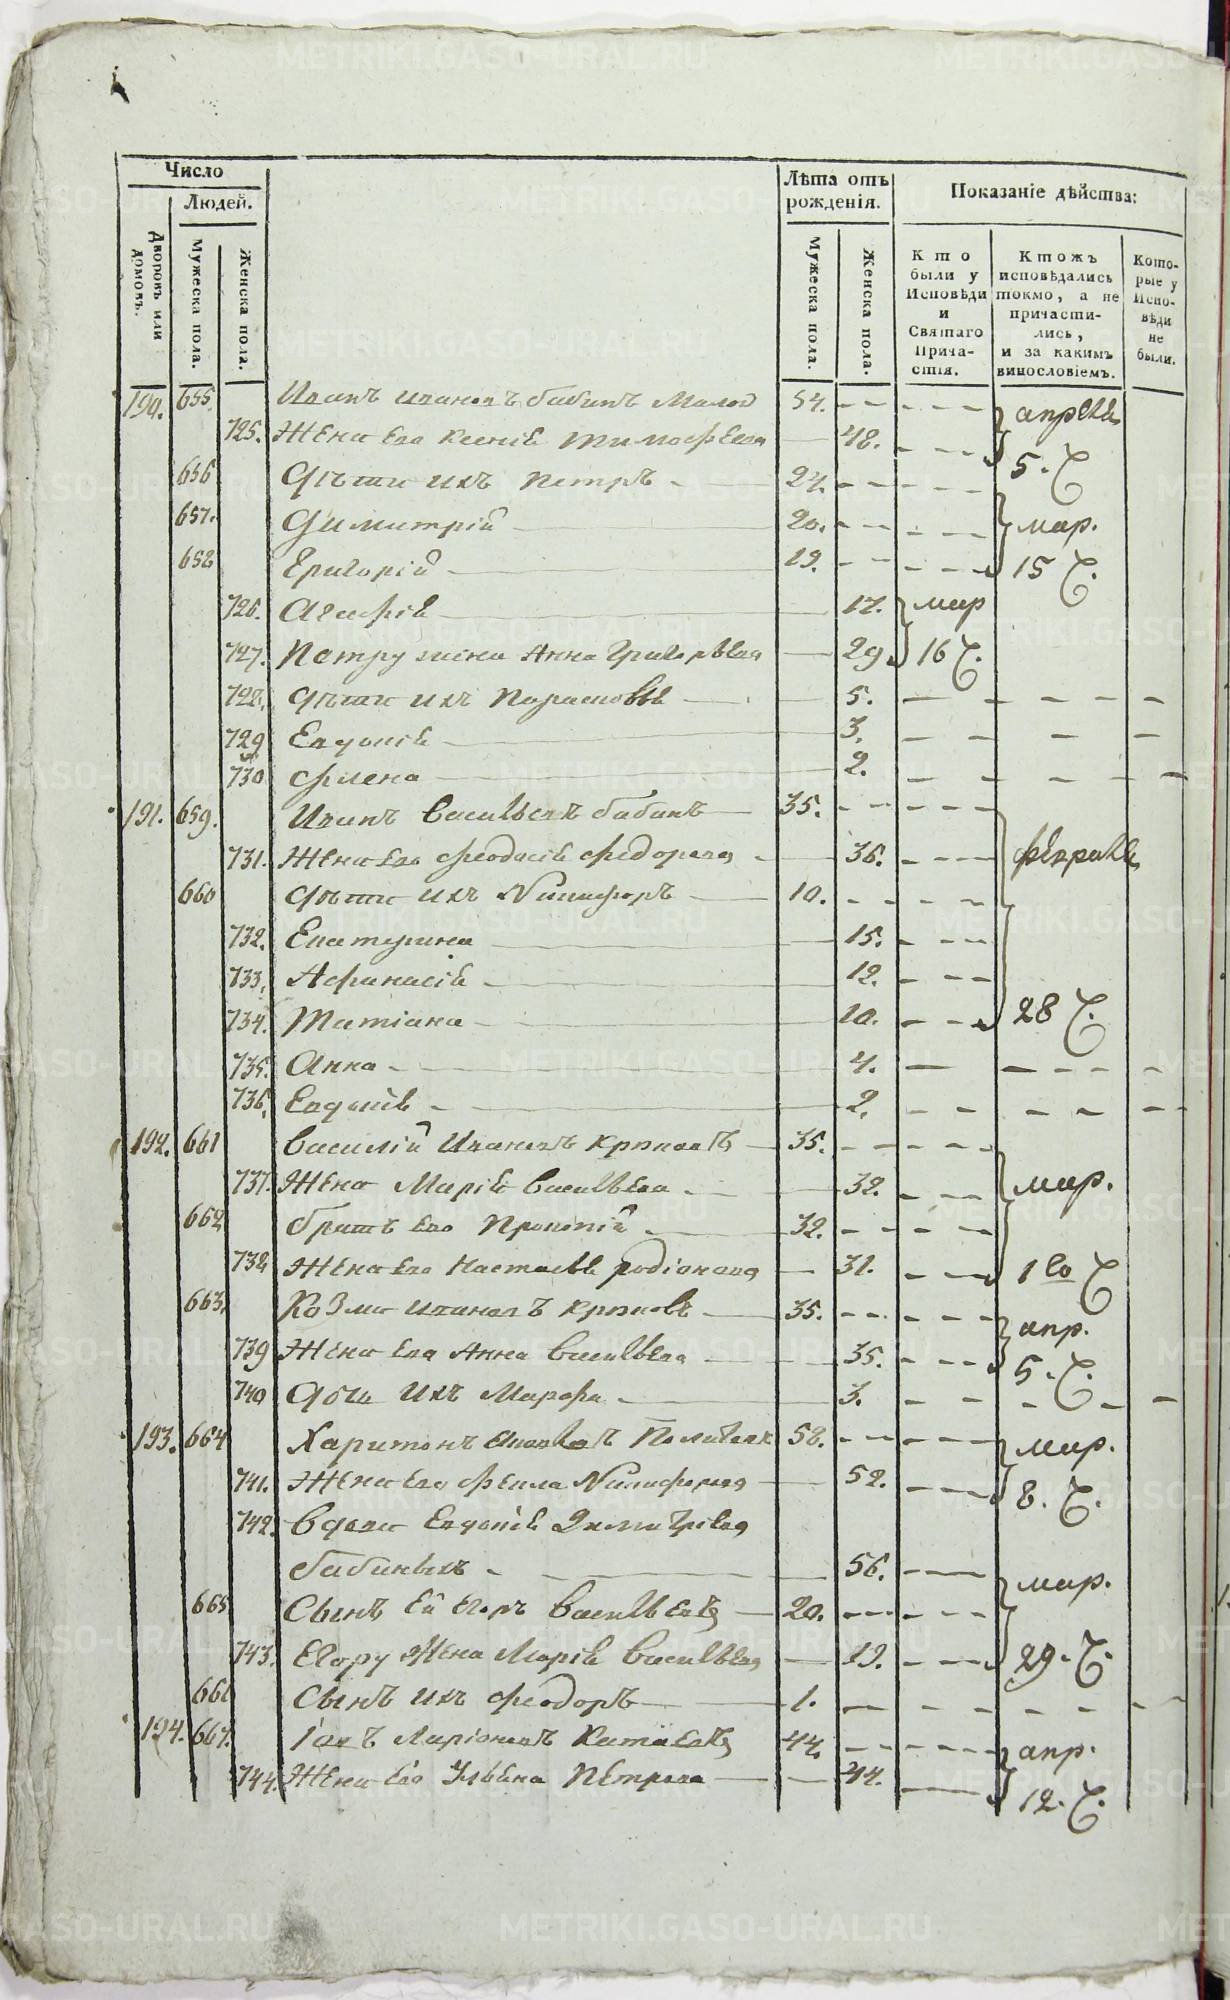 Число
Людей.
Дворовъ или домовъ.
Мужеска пола.
Женска пола.
Лѣта отъ рожденія.
Мужеска пола.
Женска пола.
Показаніе дѣйства:
Кто были у Исповѣди и Святаго Причастія.
Ктожъ исповѣдались токмо, а не причастились, и за какимъ винословіемъ.
Которые у Исповѣди не были.
190. 655. Иванъ Ивановъ Бабинъ Малой 54. апреля
725. Жена Его Ксенія Тимофѣева 48. 5. Ч
656 Дѣти ихъ Петръ 24.
657. Димитрій 20. мар.
658 Григорій 19. 15 Ч.
726. Агафія 17. мар
727. Петру жена Анна Григорьева 29 16 Ч.
728. Дѣти ихъ Парасковья 5.
729 Евдокія 3.
730 2.
191. 659. Иванъ Васильевъ Бабинъ 35.
731. Жена Его Феодосія Федорова 36. февраля
660 Дѣти ихъ Никифоръ 10.
732. Екатерина 15.
733. Афанасія 12.
734. Татіана 10. 28 Ч.
735. Анна 4.
736. Евдокія 2.
192. 661 Василій Ивановъ 35.
737. Жена Марія Васильева 32. мар.
662 Братъ Его Прокопій 32.
738 Жена Его Настасья Родіонова 31. 1го Ч
663. Козма Ивановъ 35. апр.
739 Жена Его Анна Васильева 35. 5. Ч.
740 Дочь Ихъ Марфа 3.
193. 664 Харитонъ 58. мар.
741. Жена Его Фекла Никифорова 52. 8. Ч.
742. Вдова Евдокія Димитріева
Бабиныхъ 56. мар.
665 Сынъ Ей Егоръ Васильевъ 20.
743. Егору Жена Марія Васильева 19. 29. Ч.
666 Сынъ ихъ Феодоръ 1.
194. 667. Іовъ Ларіоновъ Китаевъ 44. апр.
744. Жена Его Ульяна Петрова 44. 12. Ч.
METRIKI.GASO-URAL.RU